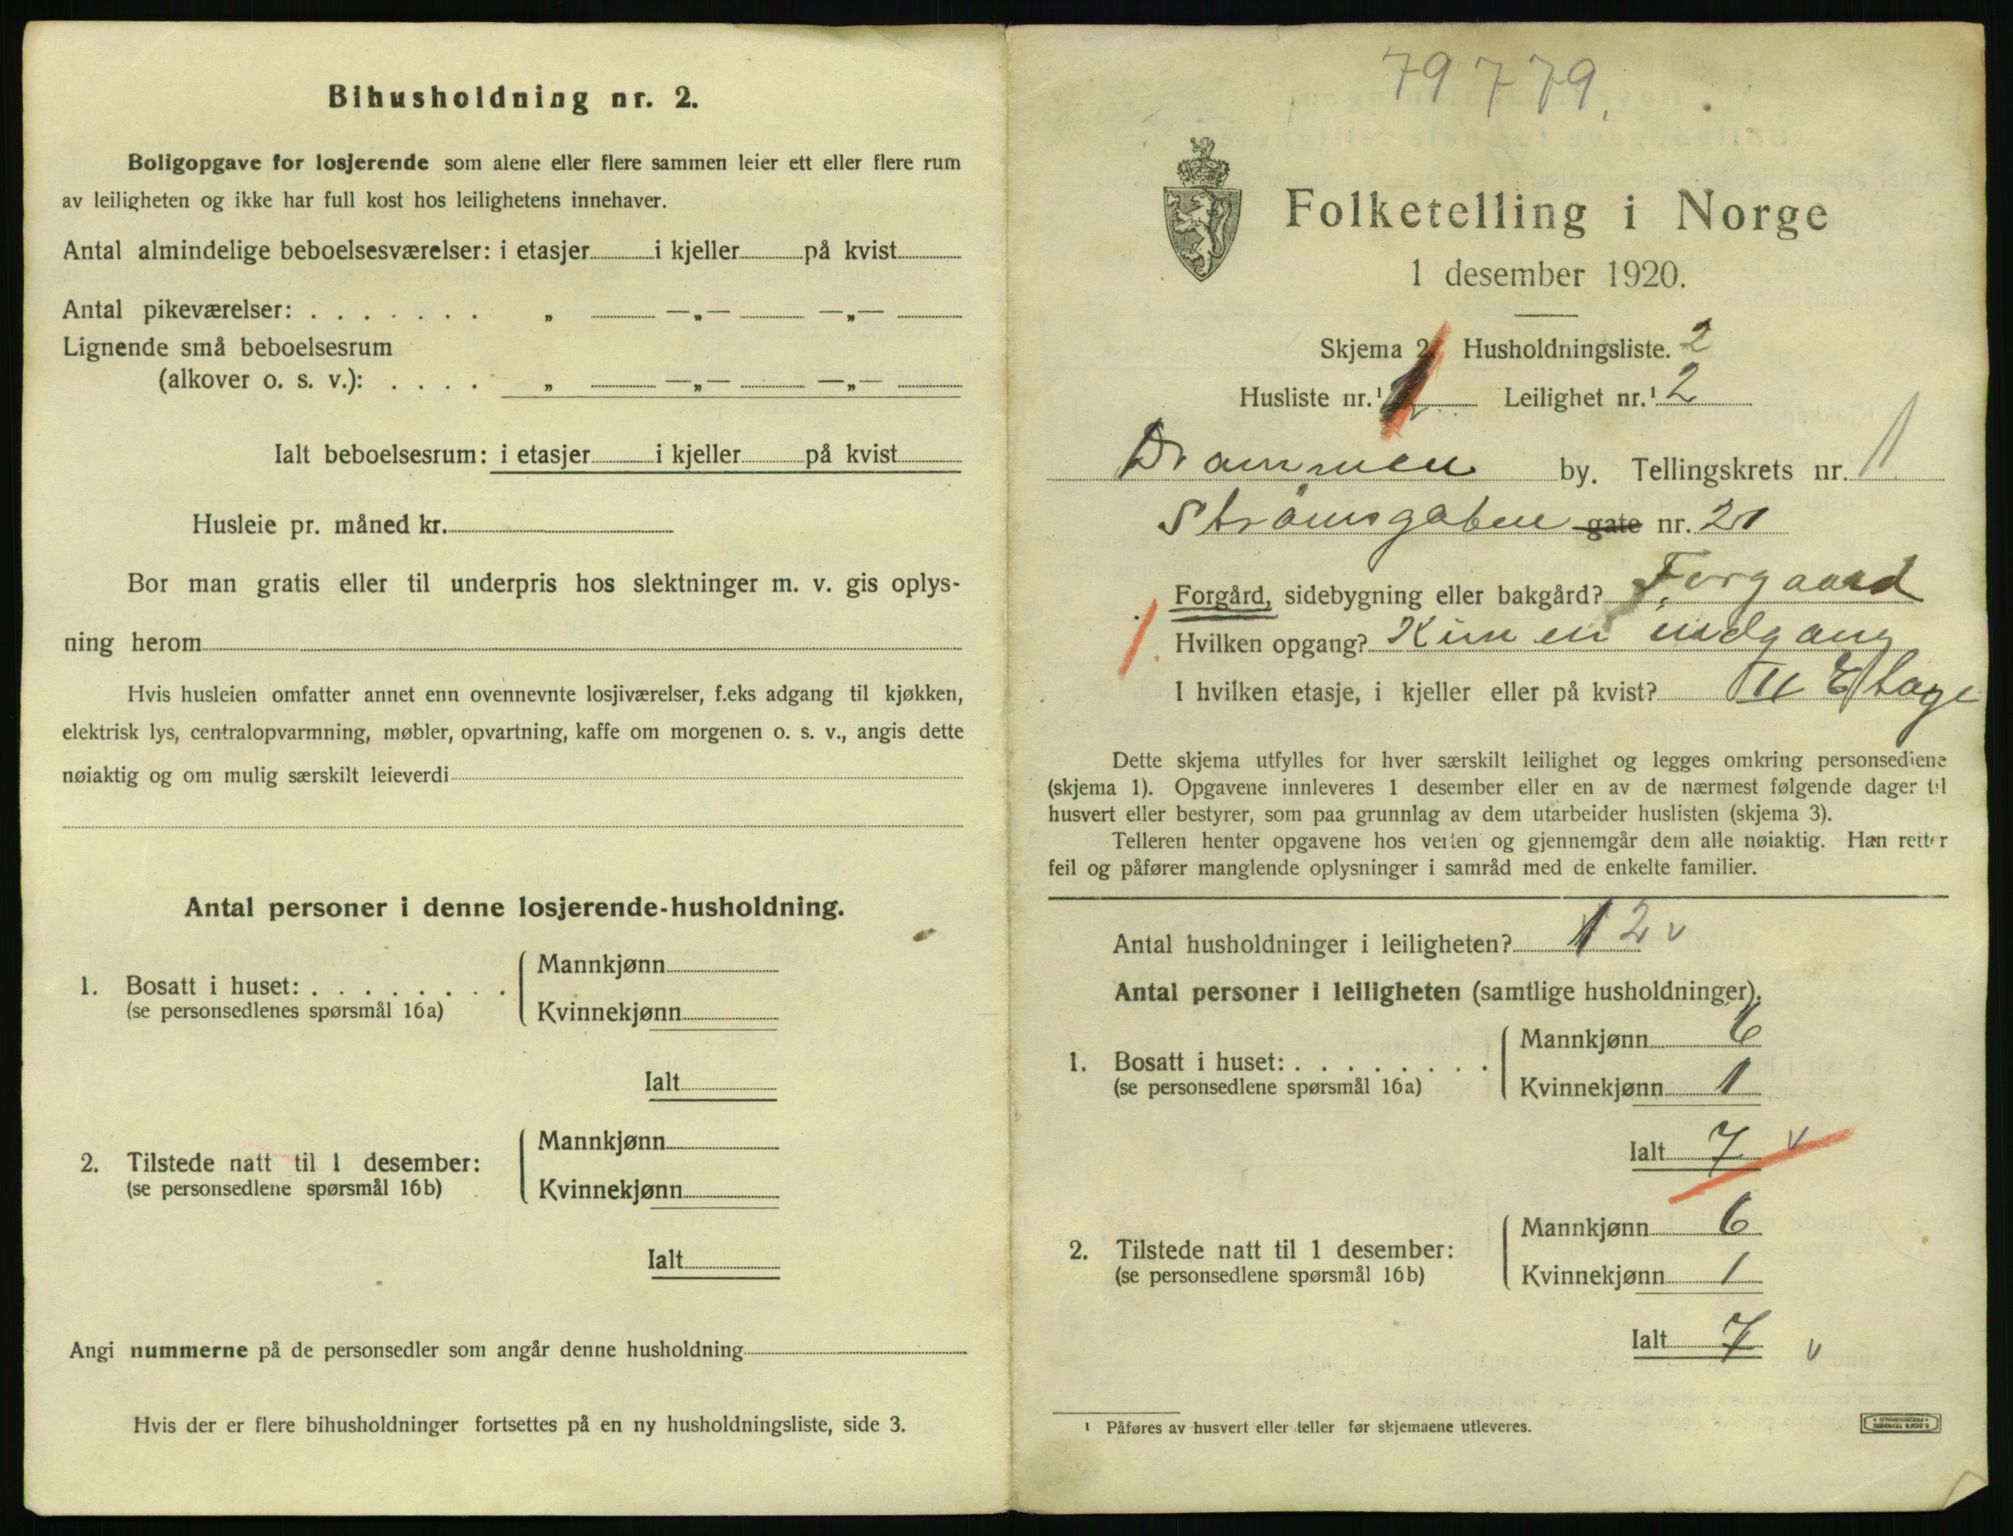 Bihusholdning nr. 2.
Boligopgave for losjerende som alene eller flere sammen leier ett eller flere rum
av leiligheten og ikke har full kost hos leilighetens innehaver.
Antal almindelige beboelsesværelser: i etasjer i kjeller på kvist
Antal pikeværelser: . . . . . . . „ —„— —„—
Lignende små beboelsesrum
(alkover o. s. v.): . . . . „ —„— —„—
Ialt beboelsesrum: i etasjer i kjeller på kvist
Husleie pr. måned kr.
Bor man gratis eller til underpris hos slektninger m. v. gis oplys-
ning herom
Hvis husleien omfatter annet enn ovennevnte losjiværelser, f.eks adgang til kjøkken,
elektrisk lys, centralopvarmning, møbler, opvartning, kaffe om morgenen o. s. v., angis dette
nøiaktig og om mulig særskilt leieverdi
Antal personer i denne losjerende-husholdning.
1. Bosatt i huset: . . . . . . . .
(se personsedlenes spørsmål 16a)
Mannkjønn
Kvinnekjønn
Ialt
2. Tilstede natt til 1 desember:
(se personsedlene spørsmål 16b)
Mannkjønn
Kvinnekjønn
Ialt
Angi nummerne på de personsedler som angår denne husholdning
Hvis der er flere bihusholdninger fortsettes på en ny husholdningsliste, side 3.
79779.
Folketelling i Norge
1 desember 1920.
Skjema 2. Husholdningsliste. 2
Husliste nr.¹ Leilighet nr.¹ 2
Drammen by. Tellingskrets nr. 1
Strømsgaten gate nr. 21
Forgård, sidebygning eller bakgård? Forgaard
Hvilken opgang? Kun en indgang
I hvilken etasje, i kjeller eller på kvist? II Etage
Dette skjema utfylles for hver særskilt leilighet og legges omkring personsedlene
(skjema 1). Opgavene innleveres 1 desember eller en av de nærmest følgende dager til
husvert eller bestyrer, som paa grunnlag av dem utarbeider huslisten (skjema 3).
Telleren henter opgavene hos verten og gjennemgår dem alle nøiaktig. Han retter
feil og påfører manglende oplysninger i samråd med de enkelte familier.
Antal husholdninger i leiligheten? 1 2 v
Antal personer i leiligheten (samtlige husholdninger).
1. Bosatt i huset: . . . . . . . .
(se personsedlene spørsmål 16a)
Mannkjønn 6
Kvinnekjønn 1
Ialt 7 v
2. Tilstede natt til 1 desember:
(se personsedlene spørsmål 16b)
Mannkjønn 6
Kvinnekjønn 1
Ialt 7 v
¹ Påføres av husvert eller teller før skjemaene utleveres.